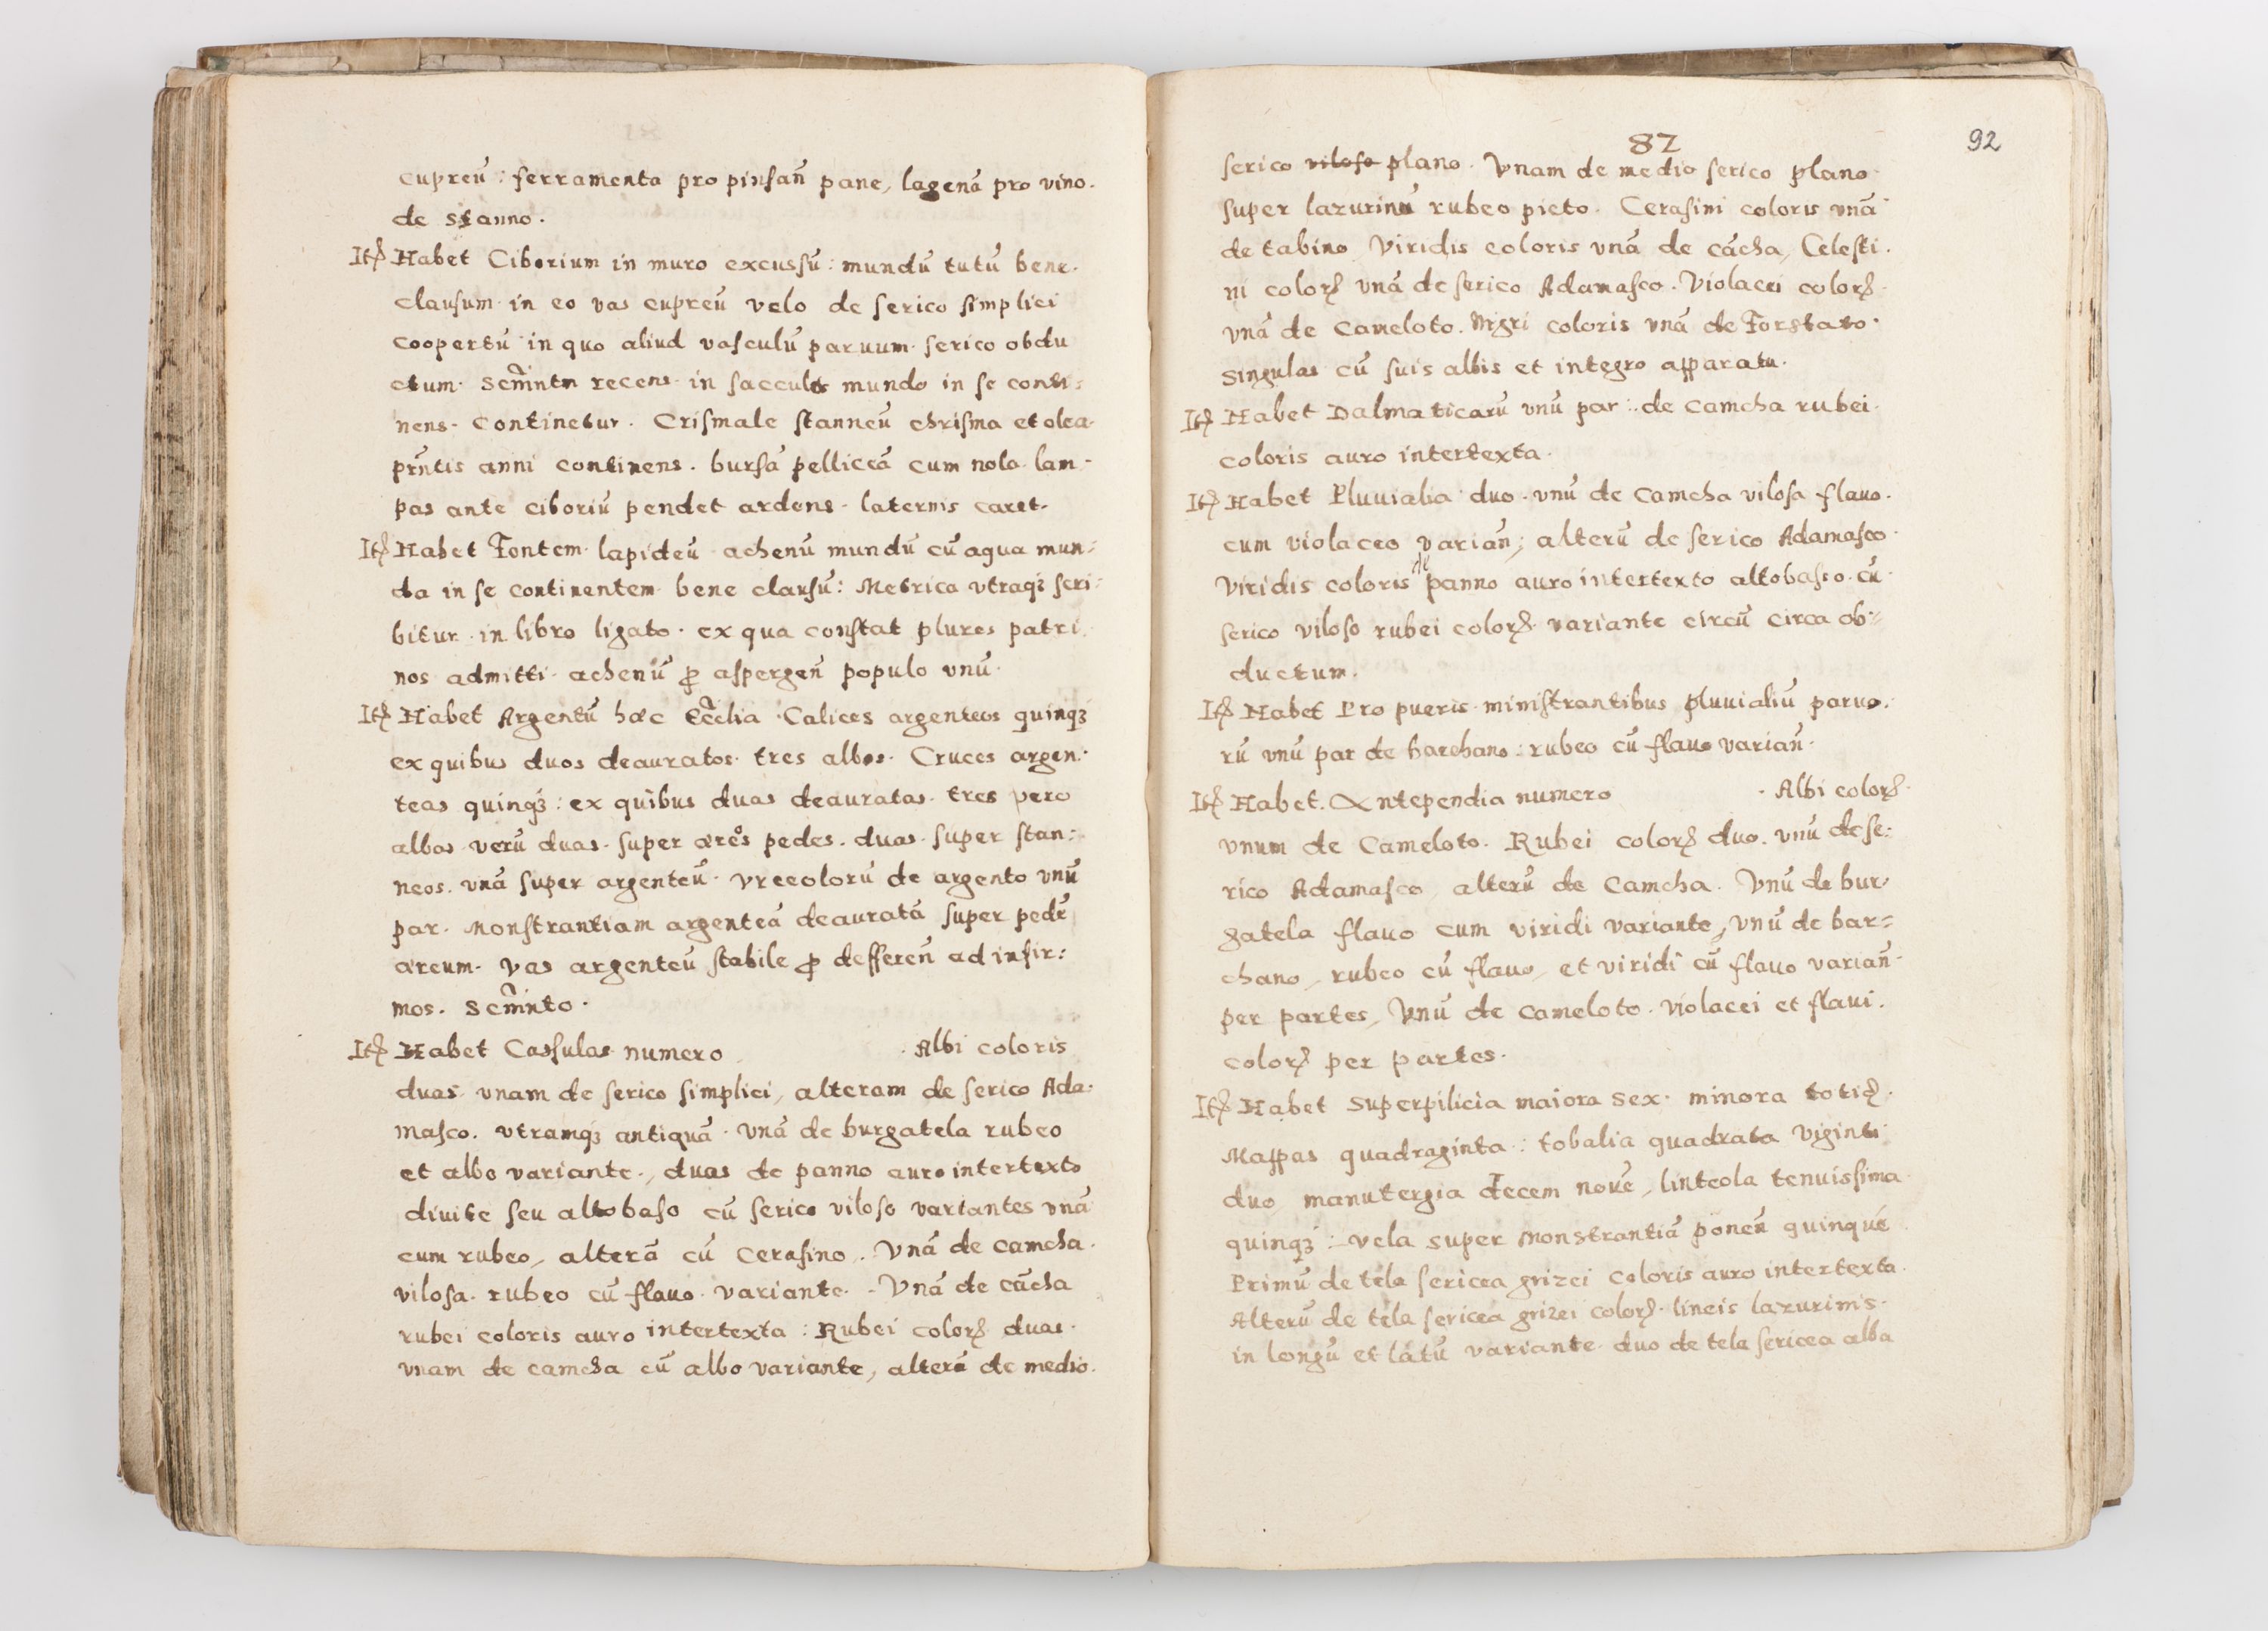 cupreū: ferramenta pro pinsan̄ pane, lagenā pro vino.
de stanno.
Itē Habet Ciborium in muro excussū: mundū tutū bene.
clausum in eo vas cupreū velo de serico simplici
coopertū in quo aliud vasculū paruum serico obdu
ctum. Scm̄ntm recens in sacculo mundo in se conti=
nens. continetur. Crismale stanneū chrisma et olea
prn̄tis anni continens. bursā pelliceā cum nola. lam-
pas ante ciboriū pendet ardens. laternis caret.
Itē Habet Fontem lapideū achenū mundū cū aqua mun=
da in se continentem bene clausū: Metrica vtraqꝫ scri=
bitur in libro ligato. ex qua constat plures patri
nos admitti. achenū ꝓ aspergen̄ populo vnū.
Itē Habet Argentū hæc Eccl̄ia Calices argenteos quinqꝫ
ex quibus duos deauratos. tres albos. Cruces argen.
teas quinqꝫ: ex quibus duas deauratas. tres vero
albas. verū duas super æreos pedes. duas super stan=
neos. vnā super argenteū. vrceolorū de argento vnū
par. Monstrantiam argenteā deauratā super pedē
æreum. Vas argenteū stabile ꝓ defferen̄ ad infir:
mos. Scm̄nto.
Itē Habet Casulas numero . Albi coloris
duas vnam de serico simplici, alteram de serico Ada.
masco. vtramqꝫ antiquā. vnā de burgatela rubeo
et albo variante., duas de panno auro intertexto
diuite seu altobaso cū serico viloso variantes vnā
cum rubeo, alterā cū Cerasino. Vnā de camcha.
vilosa. rubeo cū flauo. variante. Vnā de cācha
rubei coloris auro intertexta: Rubei colorꝭ duas.
vnam de camcha cū albo variante, alterā de medio.
87
92
serico viloso plano. Vnam de medio serico plano
super lazurinū rubeo picto. Cerasini coloris vnā
de tabino, Viridis coloris vnā de cācha, Celesti.
ni colorꝭ vnā de serico Adamasco. Violacei colorꝭ
vnā de Cameloto. Nigri coloris vnā de Forstato.
Singulas cū suis albis et integro apparatu.
Itē Habet Dalmaticarū vnū par: de camcha rubei.
coloris auro intertexta.
Itē Habet Pluuialia duo. vnū de camcha vilosa flauo.
cum violaceo varian̄; alterū de serico Adamasco
viridis coloris de panno auro intertexto altobasso. cū
serico viloso rubei colorꝭ variante circū circa ob=
ductum.
Itē Habet Pro pueris ministrantibus pluuialiū paruo.
rū vnū par de barchano: rubeo cū flauo varian̄.
Itē Habet. Antependia numero . Albi colorꝭ
vnum de Cameloto. Rubei colorꝭ duo. vnū de se:
rico Adamasco, alterū de Camcha. Vnū de bur.
gatela flauo cum viridi variante, vnū de bar=
chano, rubeo cū flauo, et viridi cū flauo varian̄
per partes, Vnū de cameloto. violacei et flaui.
colorꝭ per partes.
Itē Habet Superpilicia maiora sex. minora totiꝺ.
Mappas quadraginta: tobalia quadrata viginti
duo manutergia decem nouē, linteola tenuissima
quinqꝫ: vela super monstrantiā ponen̄ quinque
Primū de tela sericea grizei coloris auro intertexta.
Alterū de tela sericea grizei colorꝭ. lineis lazurinis.
in longū et latū variante duo de tela sericea alba